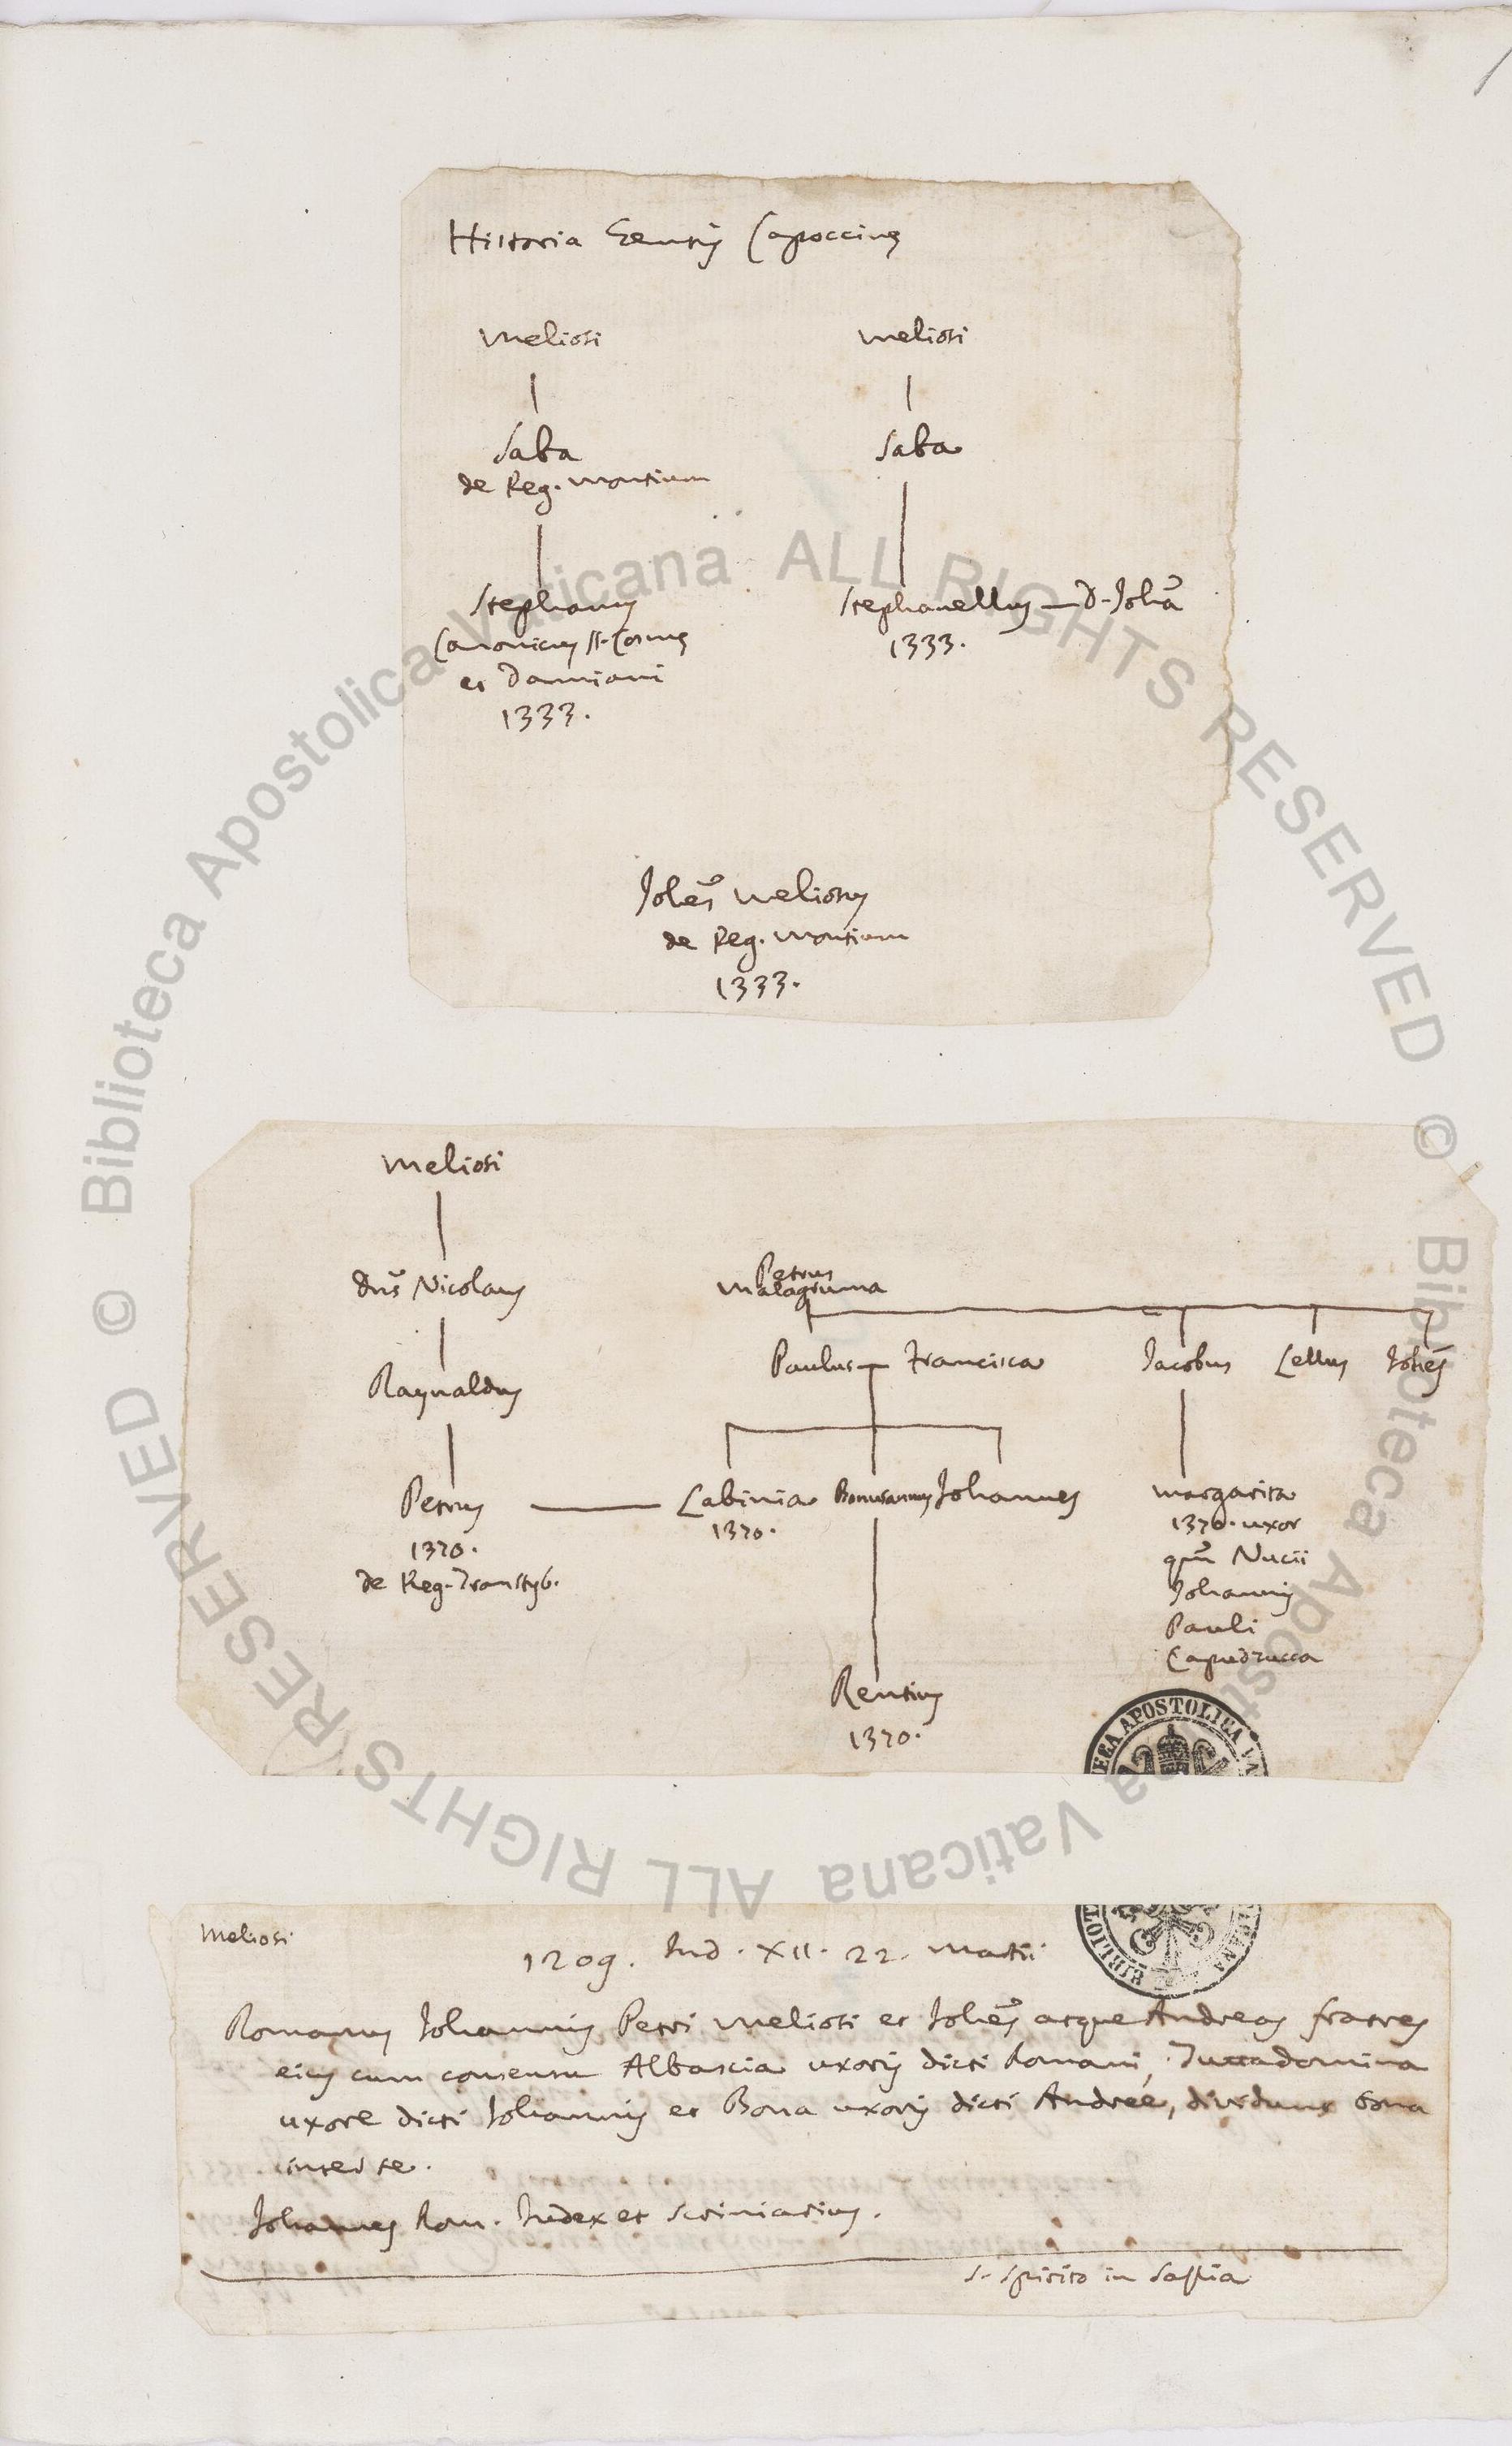 Historia Gentis Capoccinę
Meliosi Meliosi
Saba Saba
de Reg. Montium
Stephanus Stephanellus — D. Joha͂
Canonicus SS. Cosmę 1333.
et Damiani
1333.
Johes͂ Meliosus
de Reg. Montium
1333.
Meliosi
Dns͂ Nicolaus Petrus
Malagruma
Raynaldus Paulus — Francisca Jacobus Lellus Johes͂
Petrus — Labinia Johannes Margarita
1370. 1370. 1370. uxor
de Reg. Transtyb. qm͂ Nucii
Johannis
Pauli
Capudzucca
Rentius
1370.
Meliosi
1209. Ind. XII. 22. Martii
Romanus Johannis Petri Meliosi et Johes͂ atque Andreas fratres
eius cum consensu Albascia uxoris dicti Romani, Tuttadomina
uxore dicti Johannis et Bona uxoris dicti Andreę, dividunt bona
inter se.
Johannes Rom. Iudex et Scriniarius.
S. Spirito in Sassia
© Biblioteca Apostolica Vaticana ALL RIGHTS RESERVED © Biblioteca Apostolica Vaticana ALL RIGHTS RESERVED